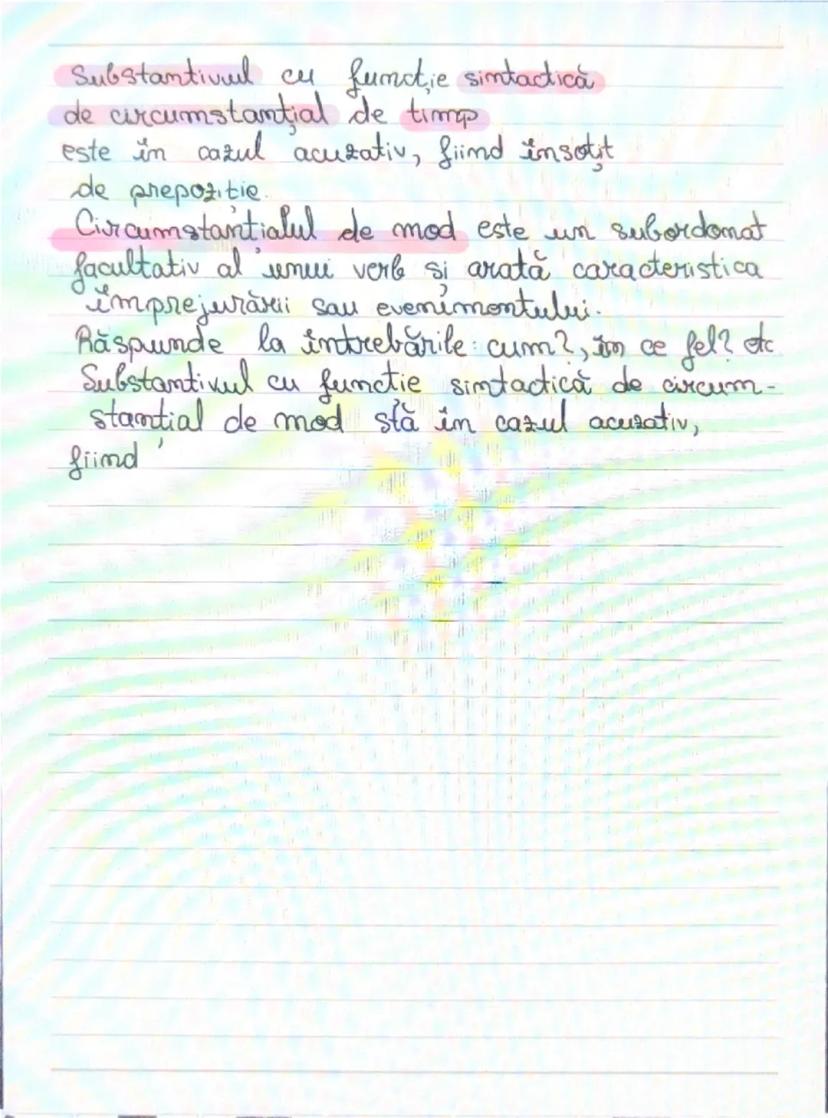 Substantivul cu funcție sintactică
de circumstanțial de timp
este în cazul acuzativ, fiind însoțit
de prepoziție.
Circumstanțialul de mod este un subordonat
facultativ al unui verb și arată caracteristica
împrejurării sau evenimentului.
Răspunde la întrebările: cum?, în ce fel? etc
Substantivul cu funcție sintactică de circum-
stanțial de mod stă în cazul acuzativ,
fiind